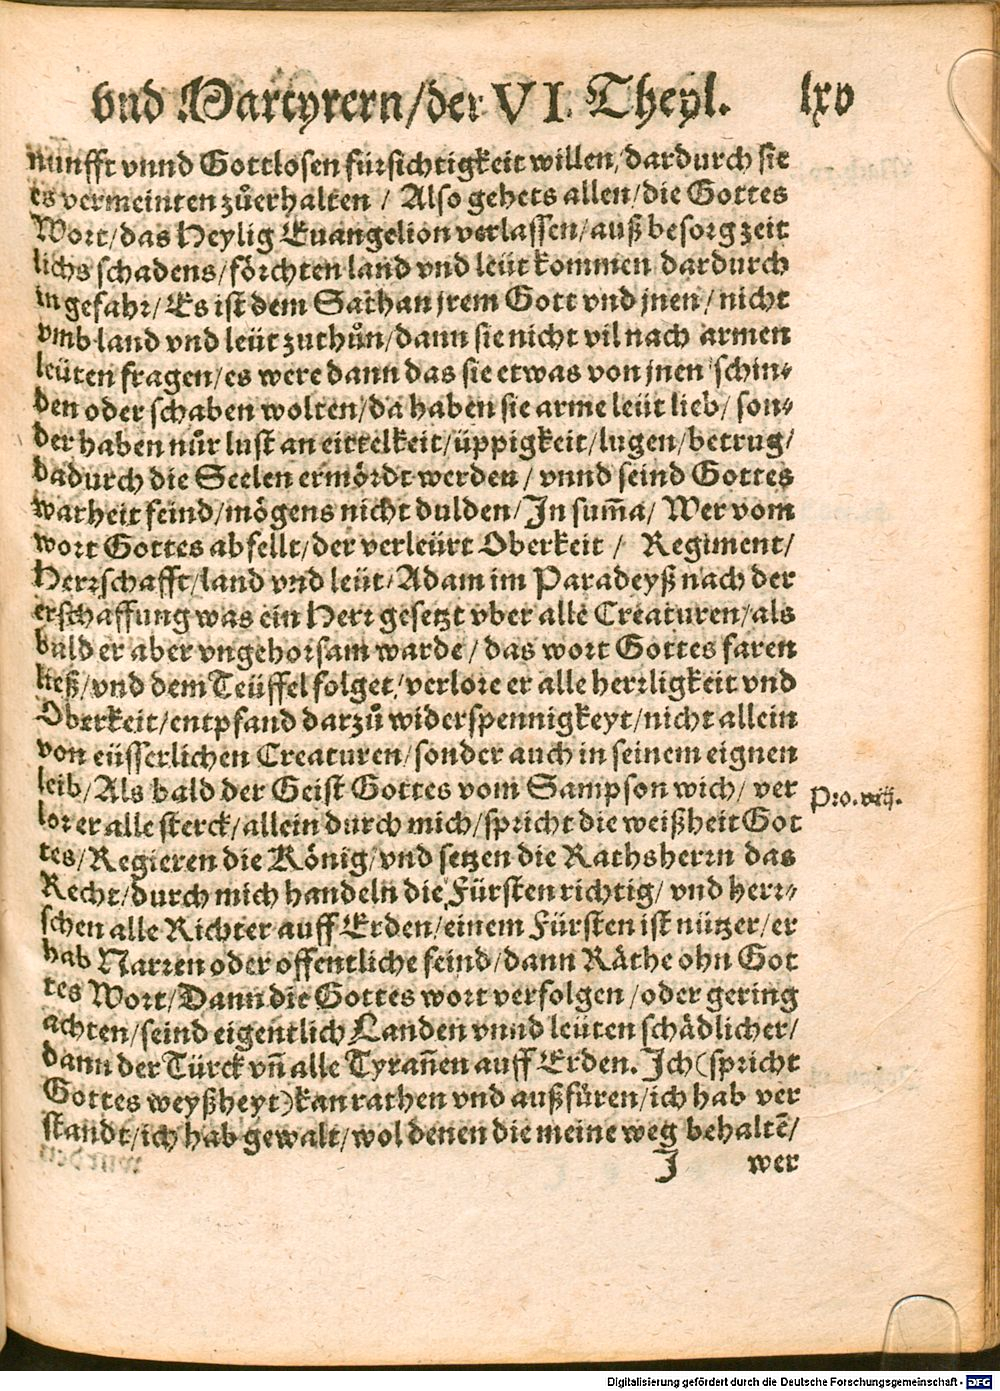 vnd Martyrern/der VI. Theyl. lxv
nunfft vnnd Gottlosen fürsichtigkeit willen/dardurch sie
es vermeinten zůerhalten / Also gehets allen/die Gottes
Wort/das Heylig Euangelion verlassen/auß besorg zeit
lichs schadens/förchten land vnd leüt kommen dardurch
in gefahr/Es ist dem Sathan jrem Gott vnd jnen/nicht
vmb land vnd leüt zuthůn/dann sie nicht vil nach armen
leüten fragen/es were dann das sie etwas von jnen schin⸗
den oder schaben wolten/da haben sie arme leüt lieb/son⸗
der haben nůr lust an eittelkeit/üppigkeit/lugen/betrug/
dadurch die Seelen ermördt werden/vnnd seind Gottes
warheit feind/mögens nicht dulden/In sum̄a/Wer vom
wort Gottes abfellt/der verleürt Oberkeit / Regiment/
Herrschafft/land vnd leüt/Adam im Paradeyß nach der
erschaffung was ein Herr gesetzt vber alle Creaturen/als
bald er aber vngehorsam warde/das wort Gottes faren
ließ/vnd dem Teüffel folget/verlore er alle herrligkeit vnd
Oberkeit/entpfand darzů widerspennigkeyt/nicht allein
von eüsserlichen Creaturen/sonder auch in seinem eignen
leib/Als bald der Geist Gottes vom Sampson wich/ver
lor er alle sterck/allein durch mich/spricht die weißheit Got
tes/Regieren die König/vnd setzen die Rathsherrn das
Recht/durch mich handeln die Fürsten richtig/vnd herr⸗
schen alle Richter auff Erden/einem Fürsten ist nützer/er
hab Narren oder offentliche feind/dann Räthe ohn Got
tes Wort/Dann die Gottes wort verfolgen/oder gering
achten/seind eigentlich Landen vnnd leüten schädlicher/
dann der Türck vn̄ alle Tyrañen auff Erden. Ich(spricht
Gottes weyßheyt)kan rathen vnd außfüren/ich hab ver
standt/ich hab gewalt/wol denen die meine weg behaltē/
J wer
Pro. viij.
Digitalisierung gefördert durch die Deutsche Forschungsgemeinschaft - DFG